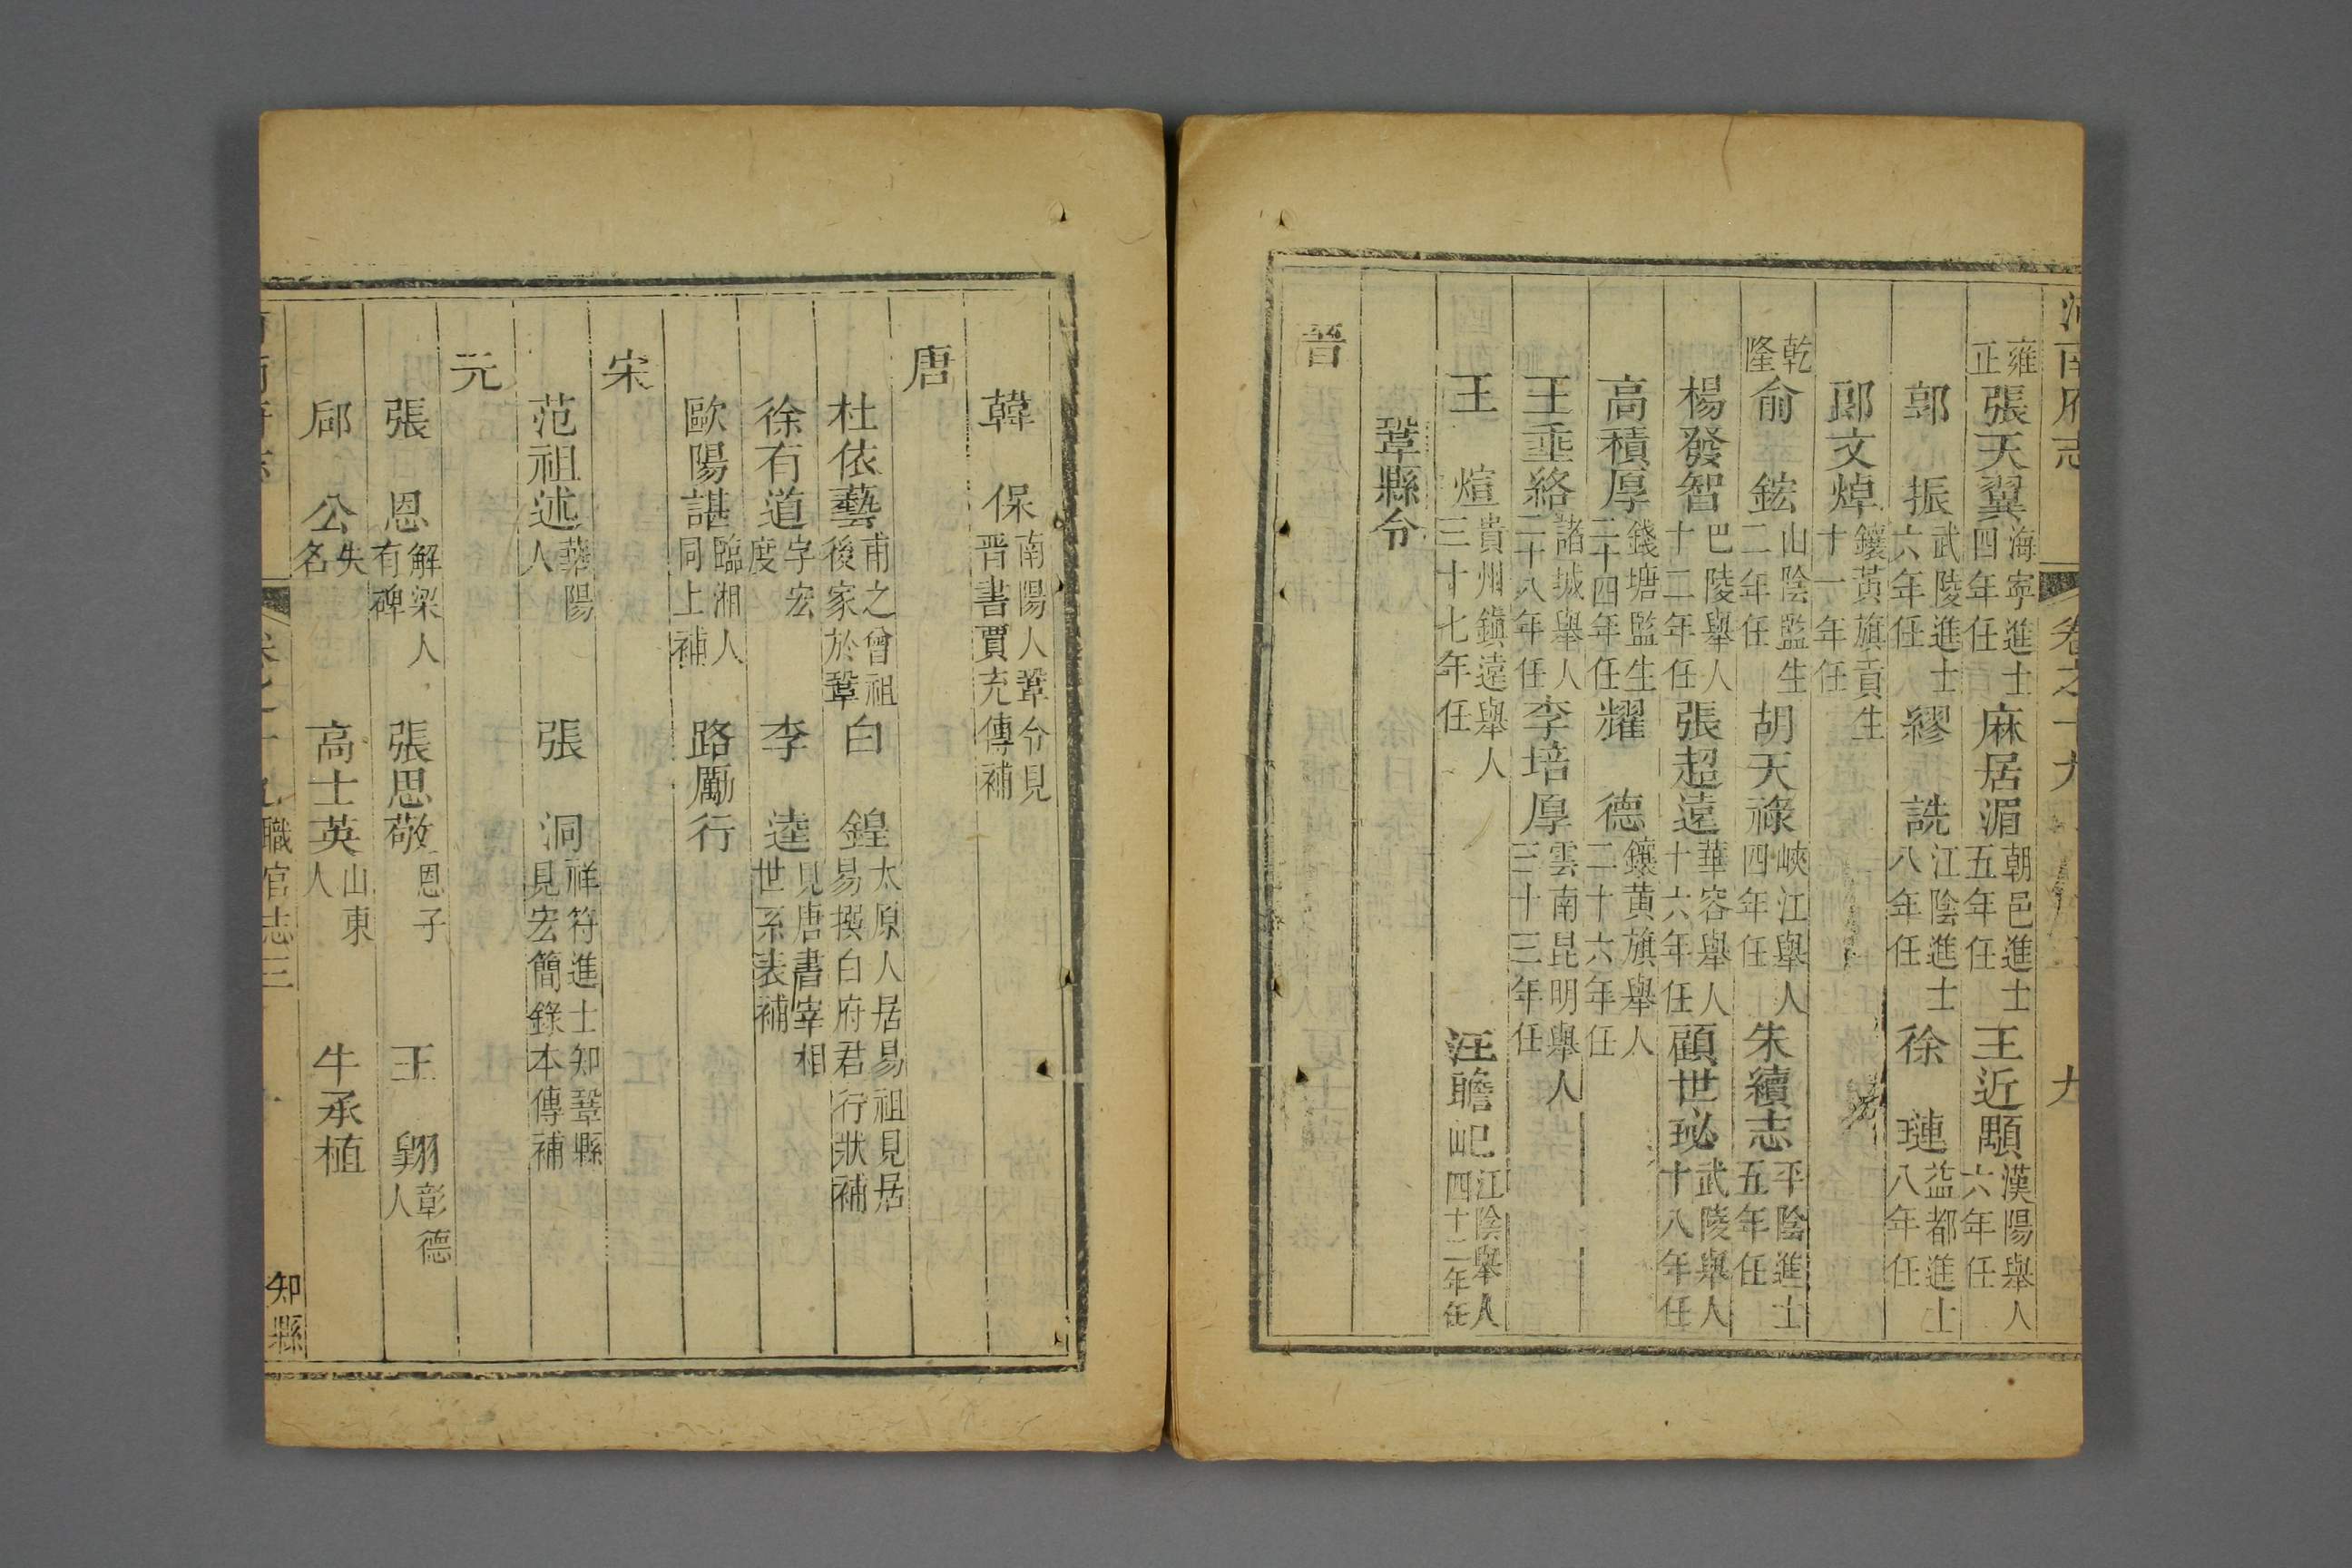 河南府志 卷之十九 九
雍正 張天翼 海寧進士四年任 麻居湄 朝邑進士五年任 王近顒 漢陽舉人六年任
郭振 武陵進士六年任 繆詵 江陰進士八年任 徐璉 益都進士八年任
郎文焯 鑲黃旗貢生十一年任
乾隆 俞鋐 山陰監生二年任 胡天祿 峽江舉人四年任 朱續志 平陰進士五年任
楊發智 巴陵舉人十二年任 張超遠 華容舉人十六年任 顧世珌 武陵舉人十八年任
高積厚 錢塘監生二十四年任 耀德 鑲黃旗舉人二十六年任
王垂絡 諸城舉人二十八年任 李培厚 雲南昆明舉人三十三年任
王煊 貴州鎭遠舉人三十七年任 汪聸屺 江陰舉人四十二年任
鞏縣令
晉
韓保 南陽人鞏令見晉書賈充傳補
唐
杜依藝 甫之曾祖後家於鞏 白鍠 太原人居易祖見居易撰白府君行狀補
徐有道 字宏度 李逵 見唐書宰相世系表補
歐陽諶 臨湘人同上補 路勵行
宋
范祖述 華陽人 張洞 祥符進士知鞏縣見宏簡錄本傳補
元
張恩 解梁人有碑 張思敬 恩子 王翱 彰德人
邸公 失名 高士英 山東人 牛承植
河南府志 卷之十九 職官志三 知縣